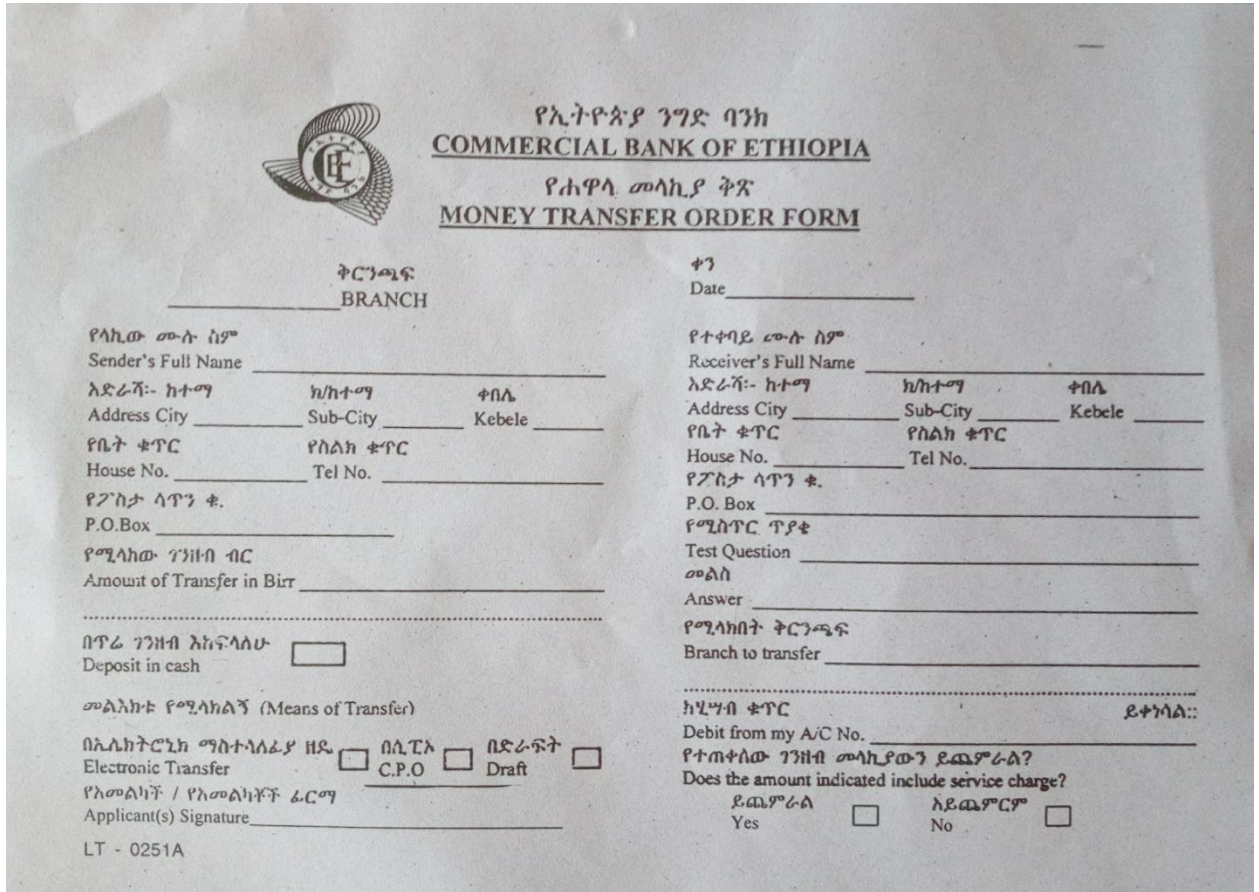 የኢትዮጵያ ንግድ ባንክ
COMMERCIAL BANK OF ETHIOPIA
የሐዋላ መላኪያ ቅጽ
MONEY TRANSFER ORDER FORM
ቅርንጫፍ
BRANCH
ቀን
Date
የላኪው ሙሉ ስም
Sender's Full Name
አድራሻ፡- ከተማ ክ/ከተማ ቀበሌ
Address City Sub-City Kebele
የቤት ቁጥር የስልክ ቁጥር
House No. Tel No.
የፖስታ ሳጥን ቁ.
P.O.Box
የሚላከው ገንዘብ ብር
Amount of Transfer in Birr
በጥሬ ገንዘብ እከፍላለሁ
Deposit in cash
መልእክቱ የሚላክልኝ (Means of Transfer)
በኢሌክትሮኒክ ማስተላለፊያ ዘዴ በሲፒኦ በድራፍት
Electronic Transfer C.P.O Draft
የአመልካች / የአመልካቾች ፊርማ
Applicant(s) Signature
LT - 0251A
የተቀባይ ሙሉ ስም
Receiver's Full Name
አድራሻ፡- ከተማ ክ/ከተማ ቀበሌ
Address City Sub-City Kebele
የቤት ቁጥር የስልክ ቁጥር
House No. Tel No.
የፖስታ ሳጥን ቁ.
P.O. Box
የሚስጥር ጥያቄ
Test Question
መልስ
Answer
የሚላክበት ቅርንጫፍ
Branch to transfer
ከሂሣብ ቁጥር ይቀነሳል፡፡
Debit from my A/C No.
የተጠቀሰው ገንዘብ መላኪያውን ይጨምራል?
Does the amount indicated include service charge?
ይጨምራል አይጨምርም
Yes No